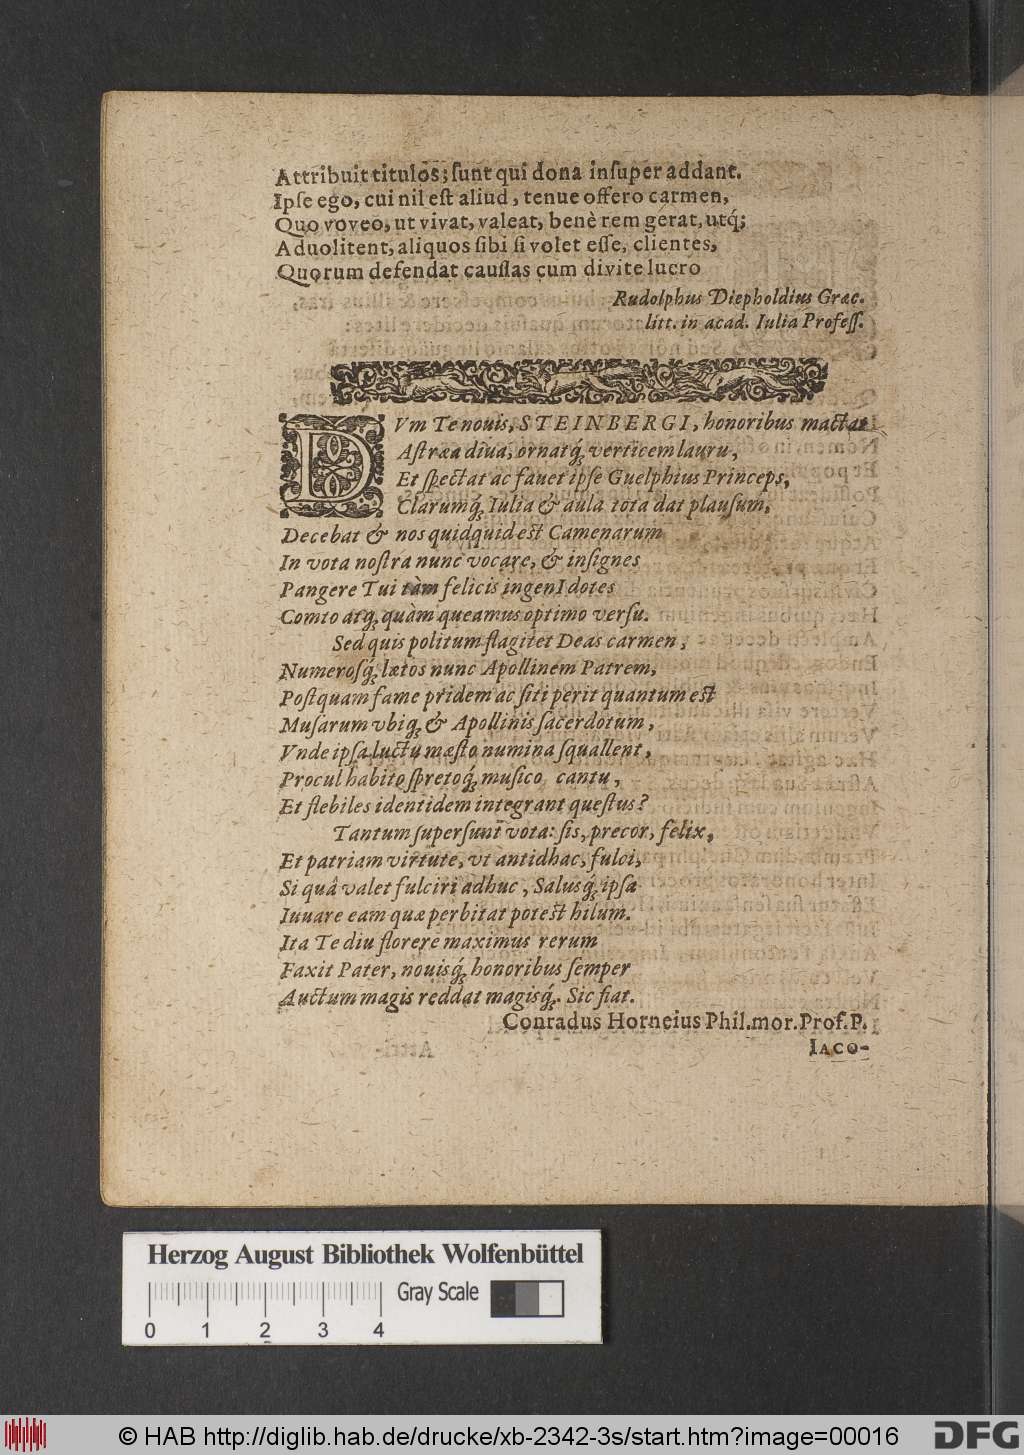 Attribuit titulos; ſunt qui dona inſuper addant.
Ipſe ego, cui nil eſt aliud, tenue offero carmen,
Quo voveo, ut vivat, valeat, benè rem gerat, utq́;
Aduolitent, aliquos ſibi ſi volet eſſe, clientes,
Quorum defendat cauſſas cum divite lucro
Rudolphus Diepholdius Græc.
litt. in acad. Iulia Profeſſ.
DVm Te nouis, STEINBERGI, honoribus mactat
Aſtræa diua, ornatq́; verticem lauru,
Et ſpectat ac fauet ipſe Guelphius Princeps,
Clarumq́; Iulia & aula tota dat plauſum,
Decebat & nos quidquid eſt Camenarum
In vota noſtra nunc vocare, & inſignes
Pangere Tui tàm felicis ingenI dotes
Comto atq; quàm queamus optimo verſu.
Sed quis politum flagitet Deas carmen,
Numeroſq́; lætos nunc Apollinem Patrem,
Poſtquam fame pridem ac ſiti perit quantum eſt
Muſarum vbiq; & Apollinis ſacerdotum,
Vnde ipſa luctu mæſto numina ſquallent,
Procul habito ſpretoq́; muſico cantu,
Et flebiles identidem integrant queſtus?
Tantum ſuperſunt vota: ſis, precor, felix,
Et patriam virtute, vt antidhac, fulci,
Si quâ valet fulciri adhuc, Salusq́; ipſa
Iuuare eam quæ perbitat poteſt hilum.
Ita Te diu florere maximus rerum
Faxit Pater, nouisq́; honoribus ſemper
Auctum magis reddat magisq́;. Sic fiat.
Conradus Horneius Phil.mor.Prof.P.
IACO-
Herzog August Bibliothek Wolfenbüttel
Gray Scale
0 1 2 3 4
© HAB http://diglib.hab.de/drucke/xb-2342-3s/start.htm?image=00016
DFG